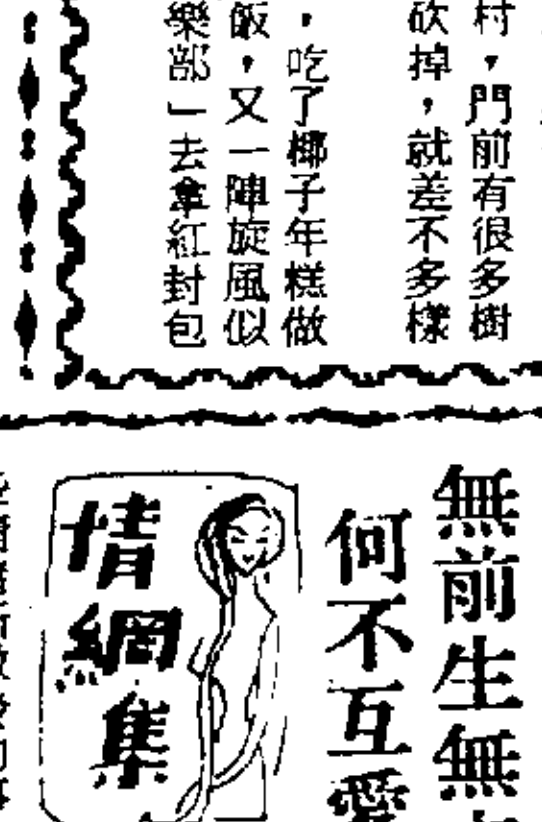 村，門前有很多樹
砍掉，就差不多樣
，吃了椰子年糕做
飯，又一陣旋風似
樂部」去拿紅封包
無前生無
何不互愛
情網集